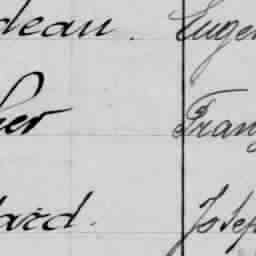 deau. Eugen
her Franç
lard. Josep